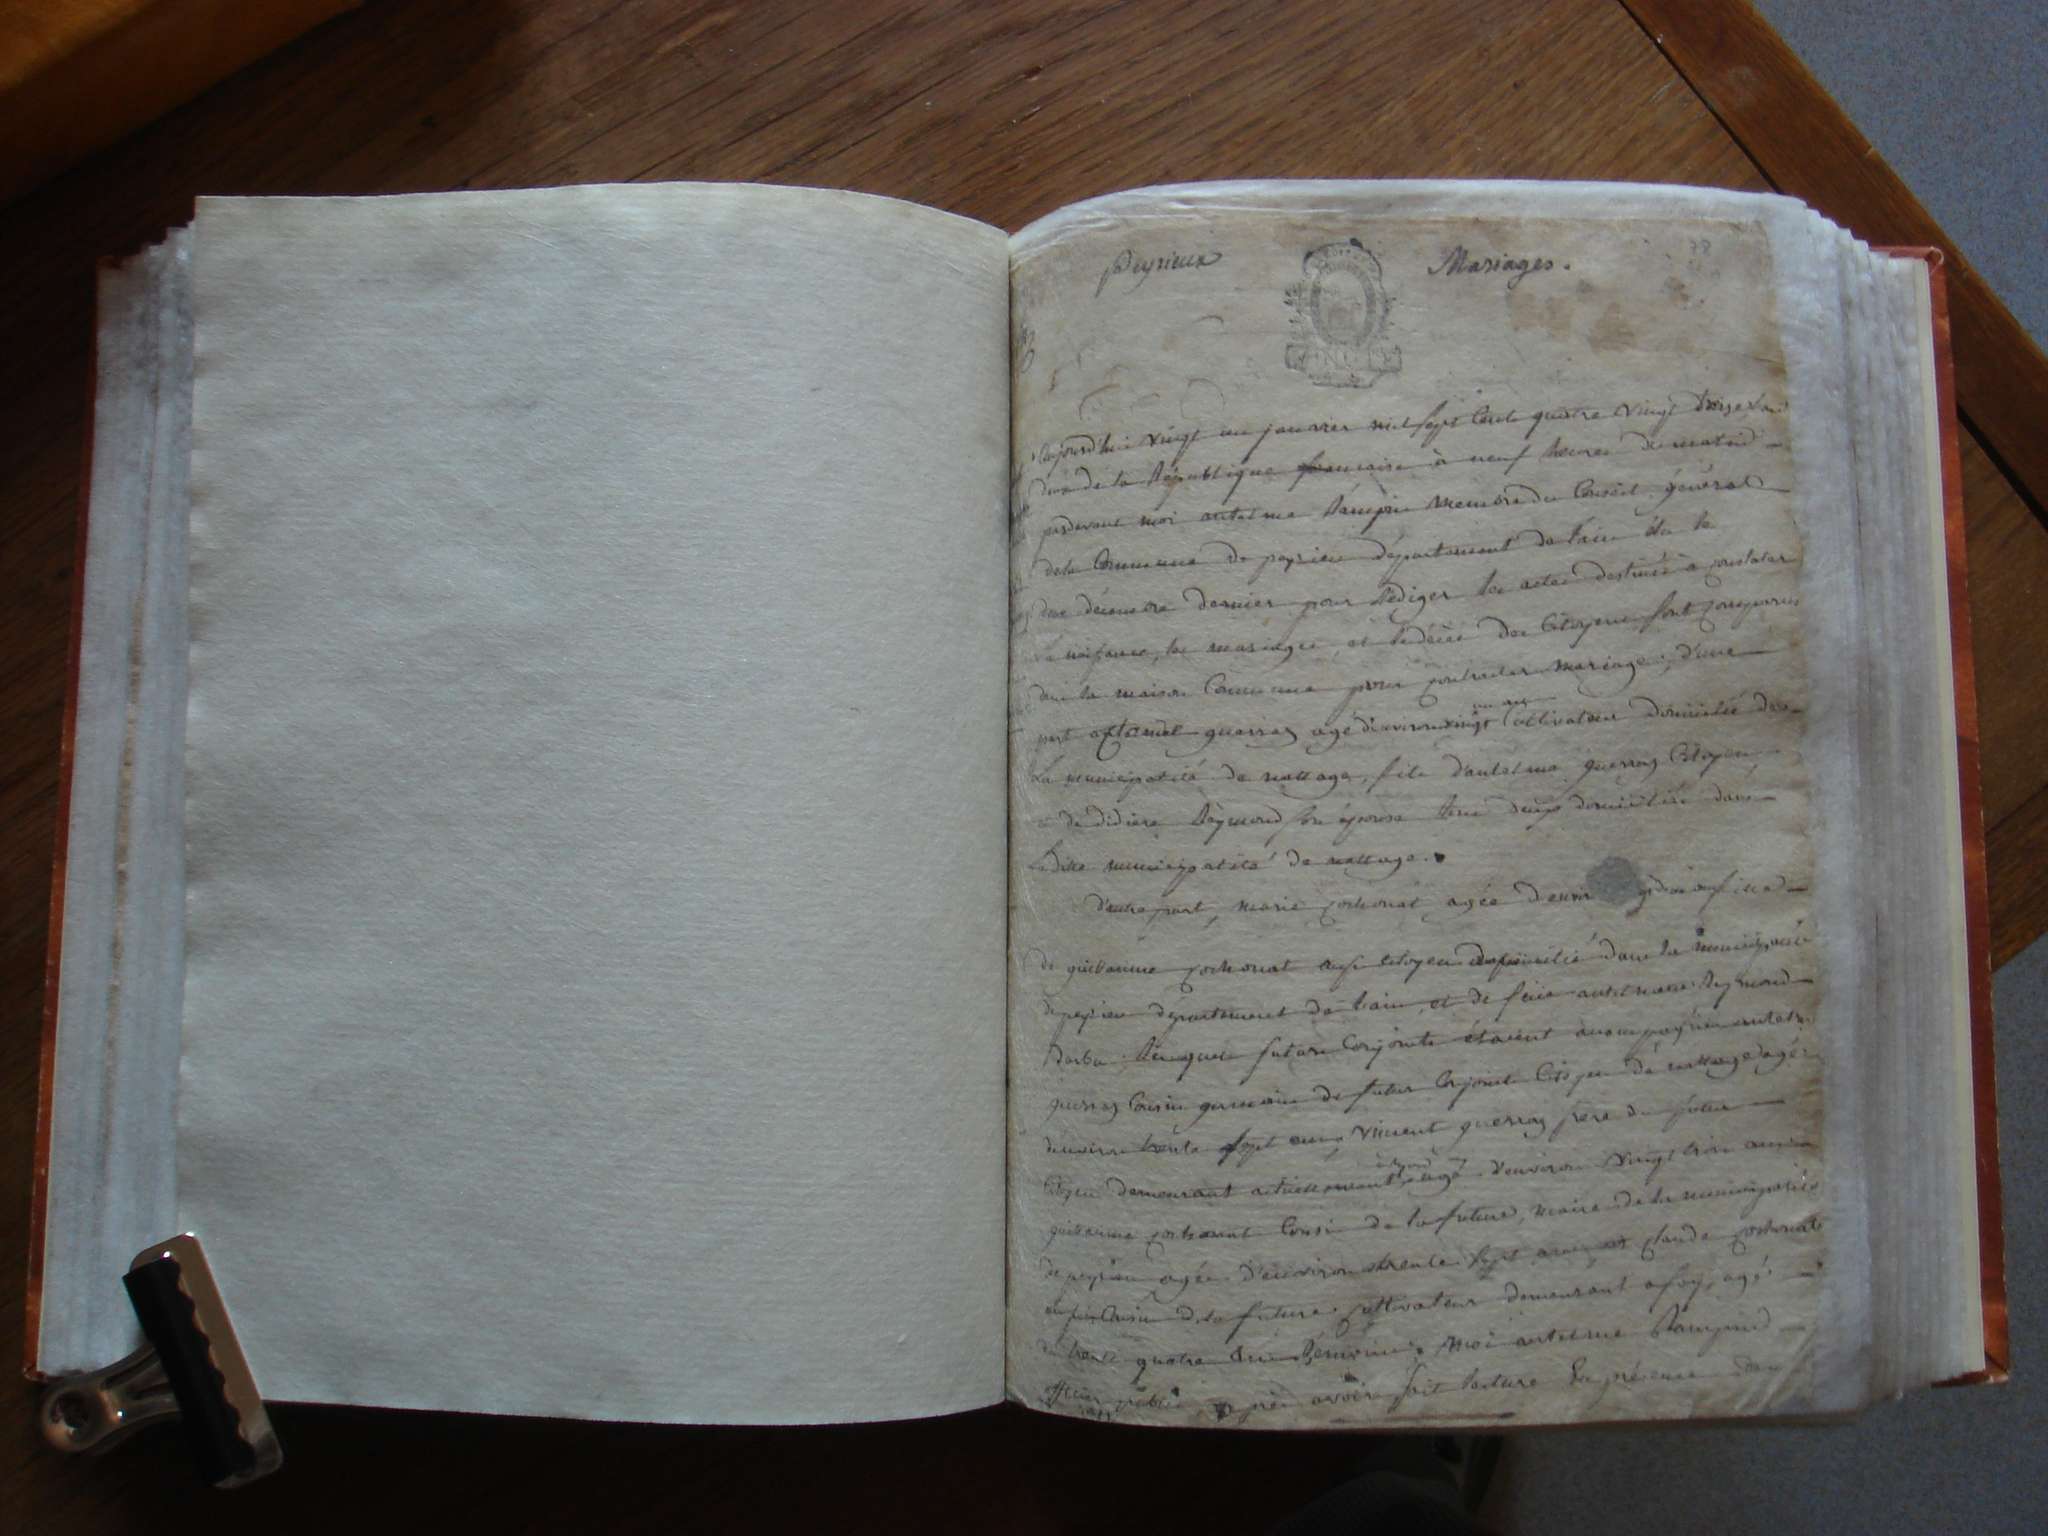 Peyrieux
Mariages.
aujourd'hui vingt un janvier mil sept cent quatre vingt treize l'an
deux de la République francaise à neuf heures du matin
pardevant moi antelme membre du Conseil général
de la Commune de peyrieu département de l'ain élu le
décembre dernier pour rédiger les actes destinés à constater
la naissance, les mariages, et le décès des Citoyens sont comparus
dans la maison Commune pour contracter mariage; d'une
part guerraz agé d'environ vingt un ans cultivateur domicilié dans
La municipalité de nattage, fils d'antelme guerraz Citoyen,
de didière Reymond son épouse deux domiciliés dans
Ladite municipalité de nattage.
d'autre part, marie pochonat agée d'environ fille
de guillaume pochonat citoyen domicilié dans la municipalité
de peyrieu département de l'ain, et de feue antelmete Reymond
futurs Conjoints étoient accompagnés
guerraz Cousin germain du futur Conjoint Citoyen de nattage agé
d'environ trente sept ans, vincent guerraz frere du futur
Citoyen demeurant actuellement agé d'environ vingt trois ans
guillaume pochonat Cousin de la future, maire de la municipalité
de peyrieu agée d'environ trente sept ans et claude pochonat
aussi Cousin de la future cultivateur demeurant agé
de trente quatre moi antelme
officier public, après avoir fait lecture En présence des